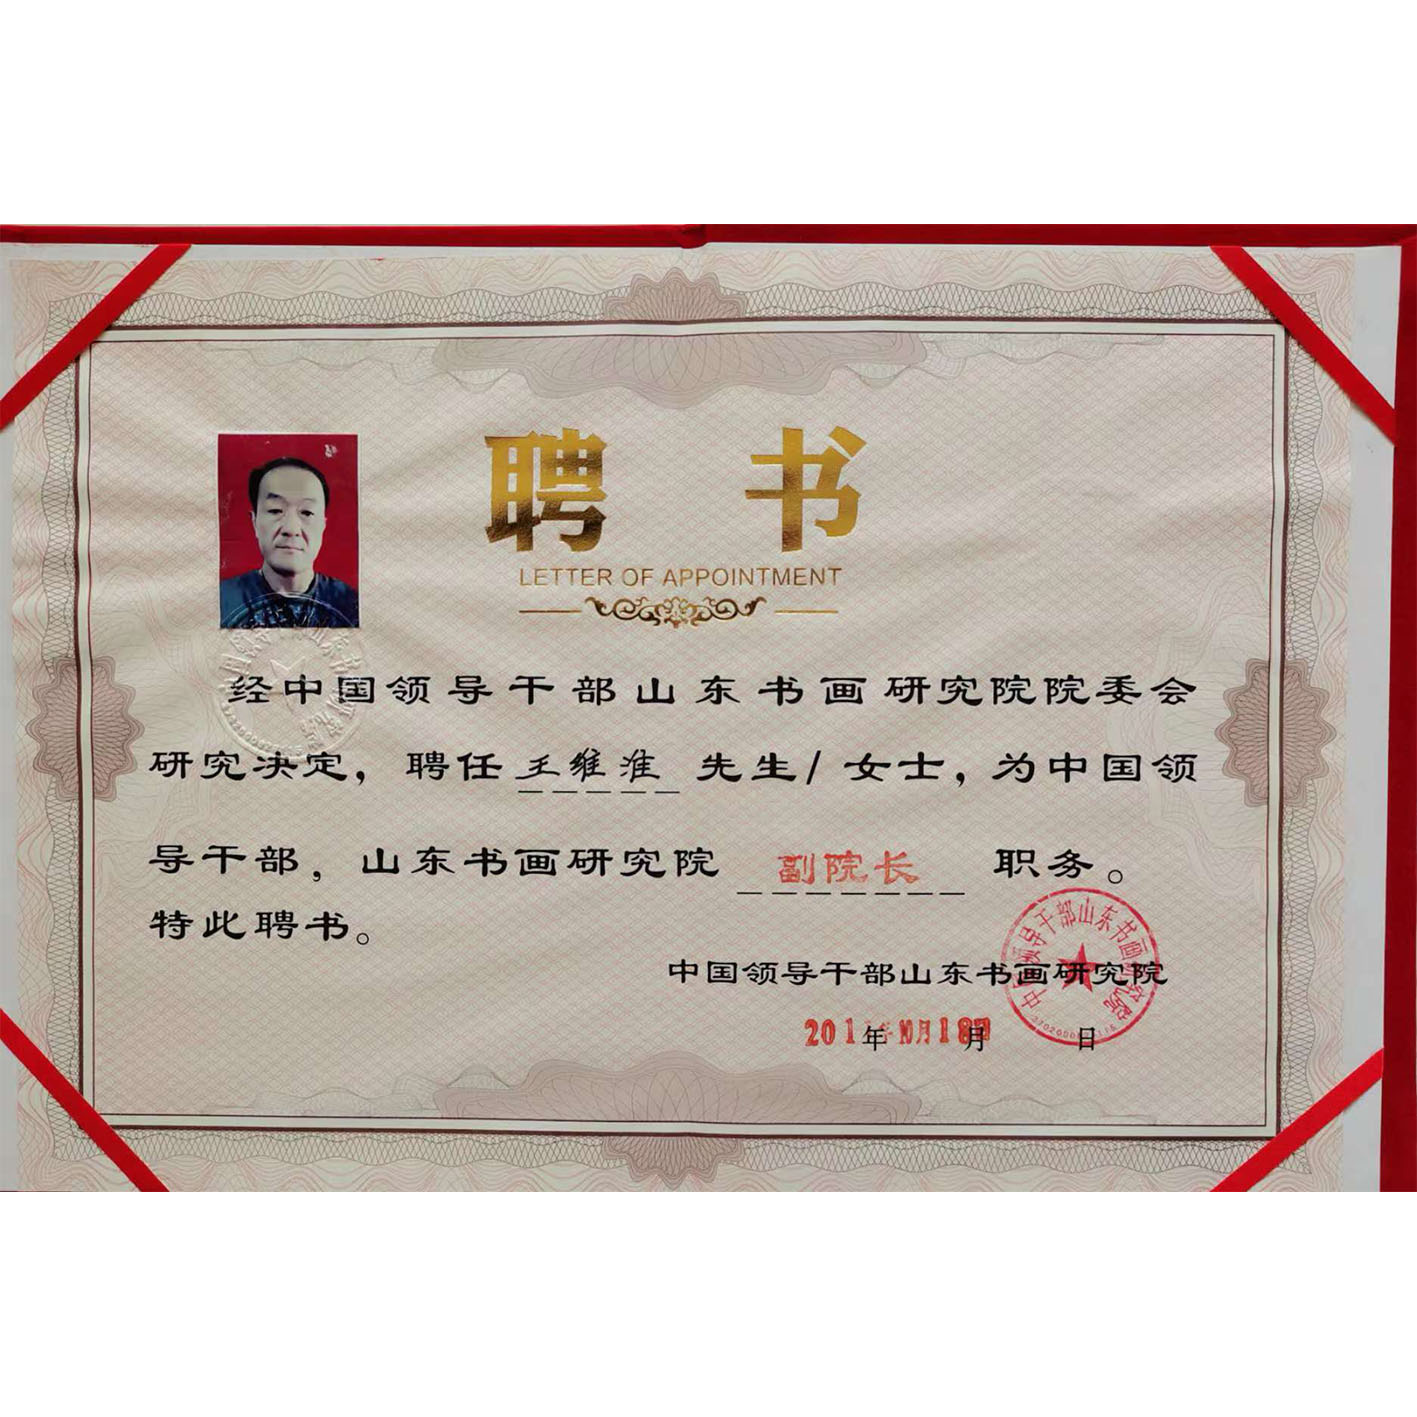 聘 书
LETTER OF APPOINTMENT
经中国领导干部山东书画研究院院委会
研究决定，聘任 王维淮 先生/女士，为中国领
导干部，山东书画研究院 副院长 职务。
特此聘书。
中国领导干部山东书画研究院
年 月 日
中国领导干部山东书画研究院